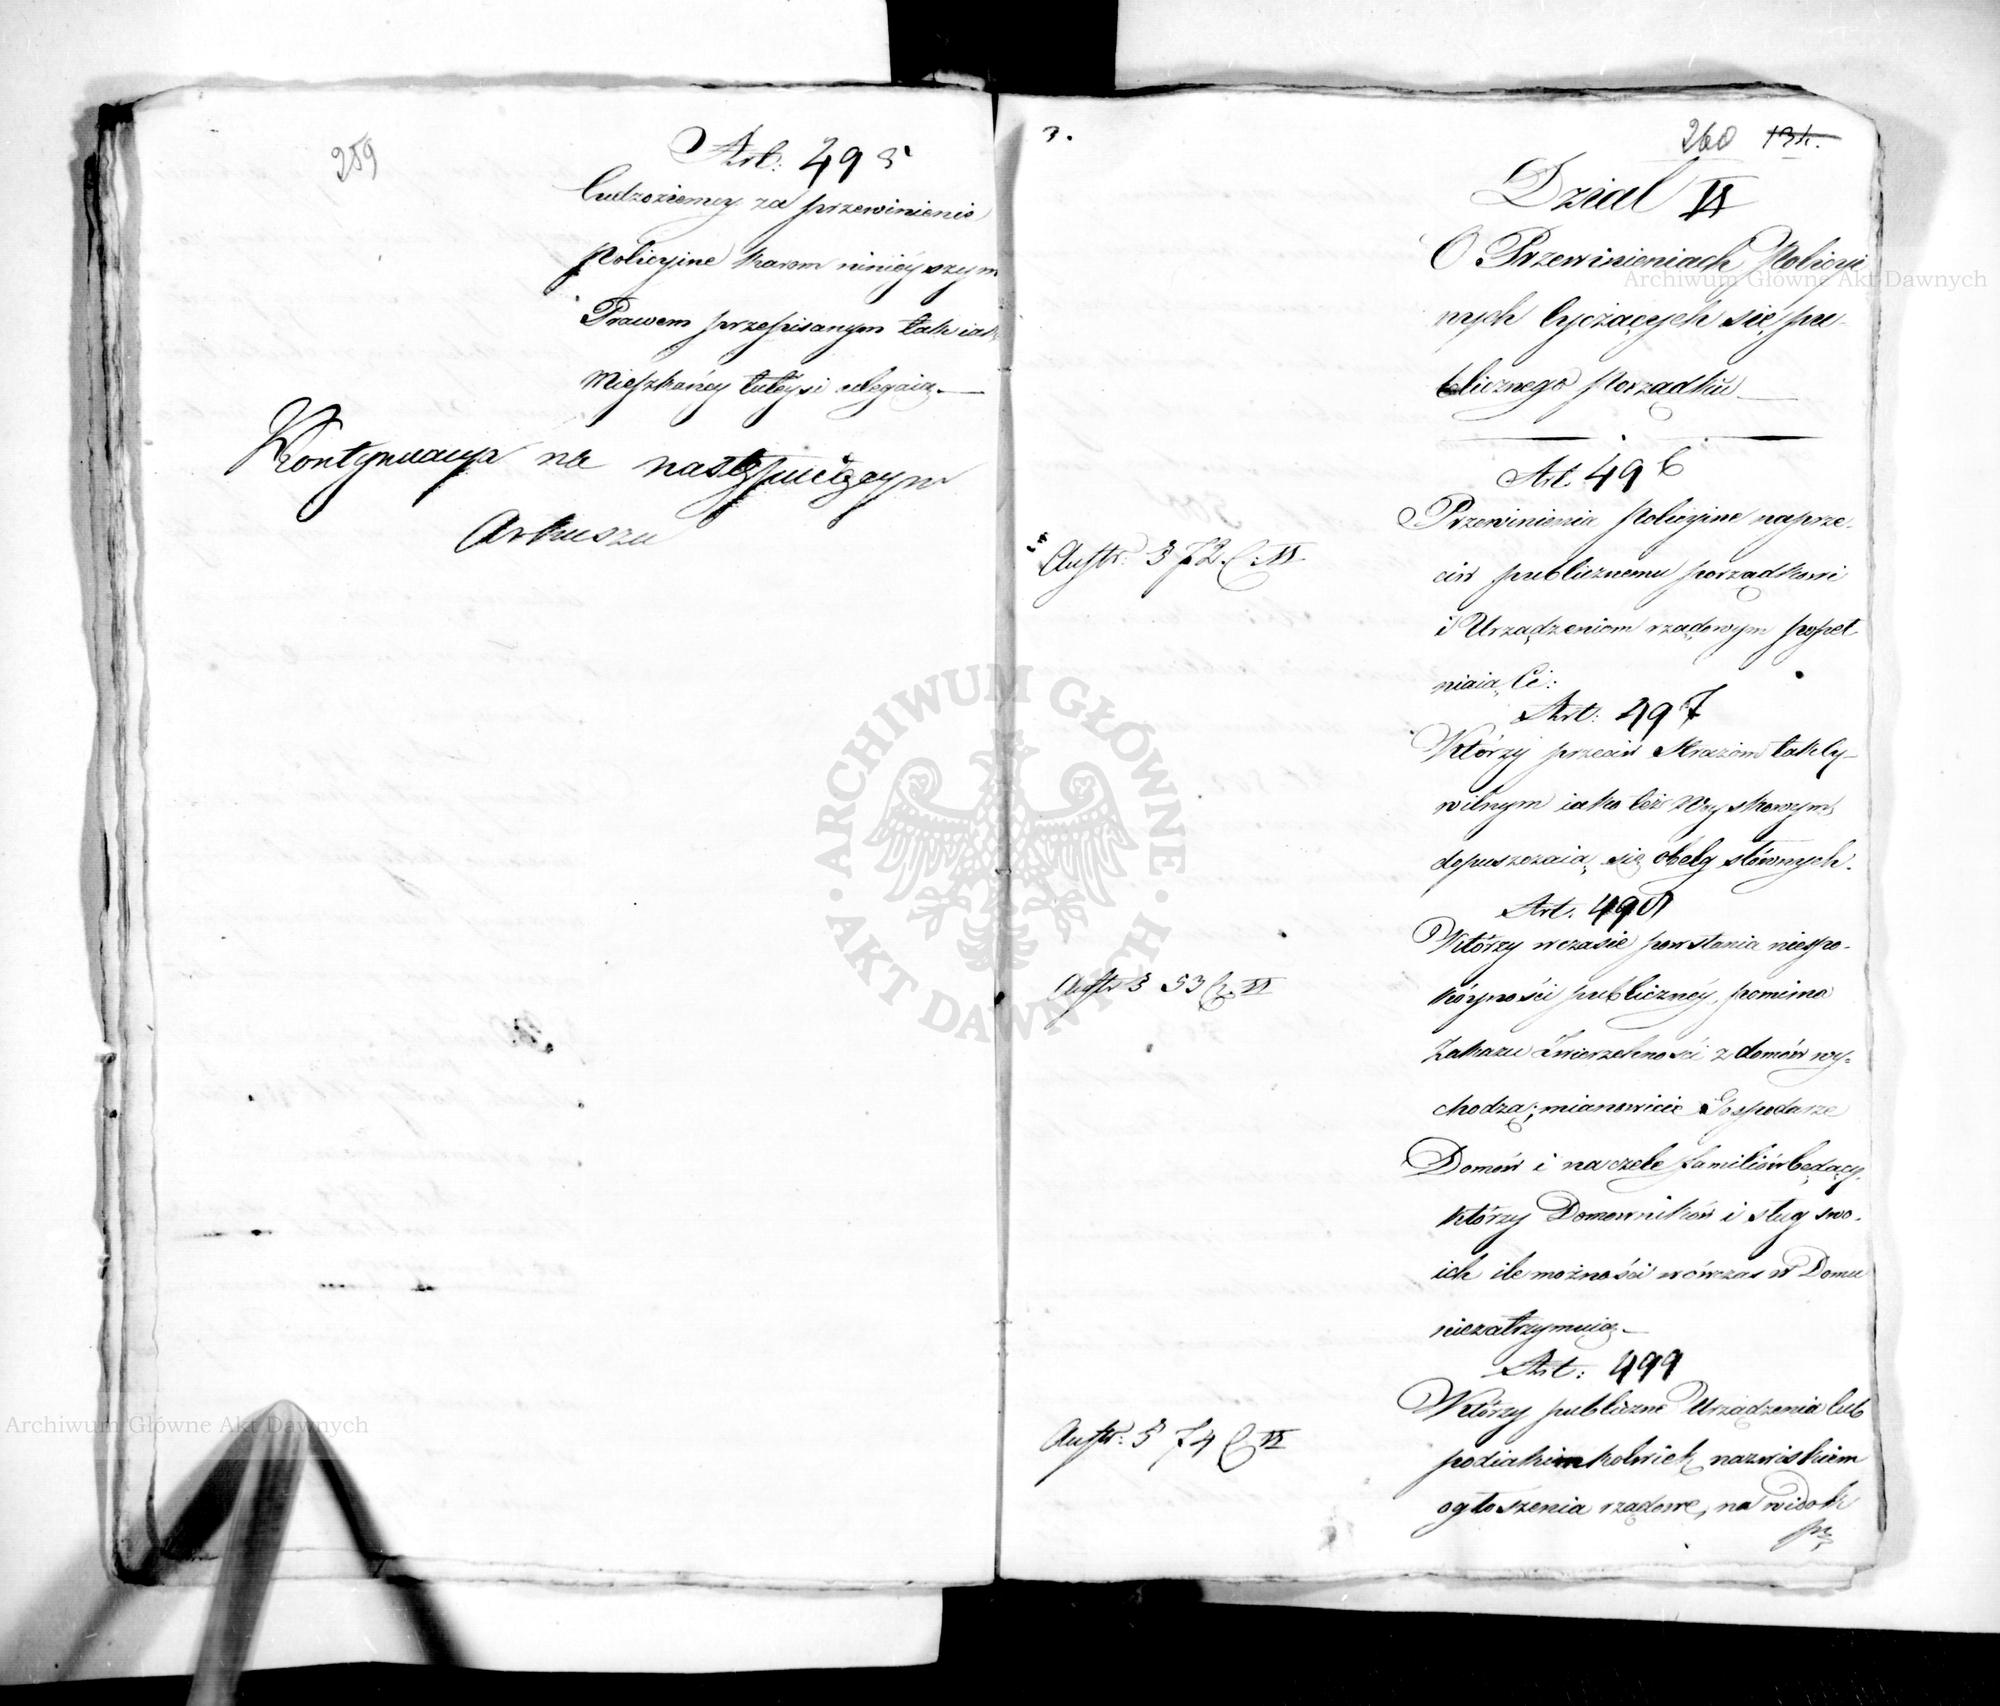 259
Art: 495
Cudzoziemcy za przewinienia
Policyine karom ninieyszym
Prawem przepisanym tak iak
Mieszkańcy tuteysi ulegaią.
Kontynuacya na następuiącym
Arkuszu
3.
260 131.
Dział II
O Przewinieniach Policyi
nych tyczących się pu-
blicznego Porządku
Art 496
Przewinienia Policyine naprze-
ciw publicznemu porządkowi
i Urządzeniom rządowym popeł
niaią Ci:
Austr: § 72. C. II.
Art: 497
Którzy przeciw Strażom tak Cy-
wilnym iako też Woyskowym
dopuszczaią się obelg słównych.
Art. 498
Którzy wczasie powstania niespo-
kóyności publiczney, pomimo
Zakazu Zwierzchności z domów wy-
chodzą; mianowicie Gospodarze
Domów i na czele familiów będący,
którzy Domowników i sług swo-
ich ile możności wówczas w Domu
niezatrzymuią.
Austr § 53 C. II
Art: 499
Którzy publiczne Urządzenia lub
podiakimkolwiek nazwiskiem
ogłoszenia rządowe, na widok
Austr: § 74 C II
Archiwum Główne Akt Dawnych
ARCHIWUM GŁÓWNE AKT DAWNYCH
Archiwum Główne Akt Dawnych